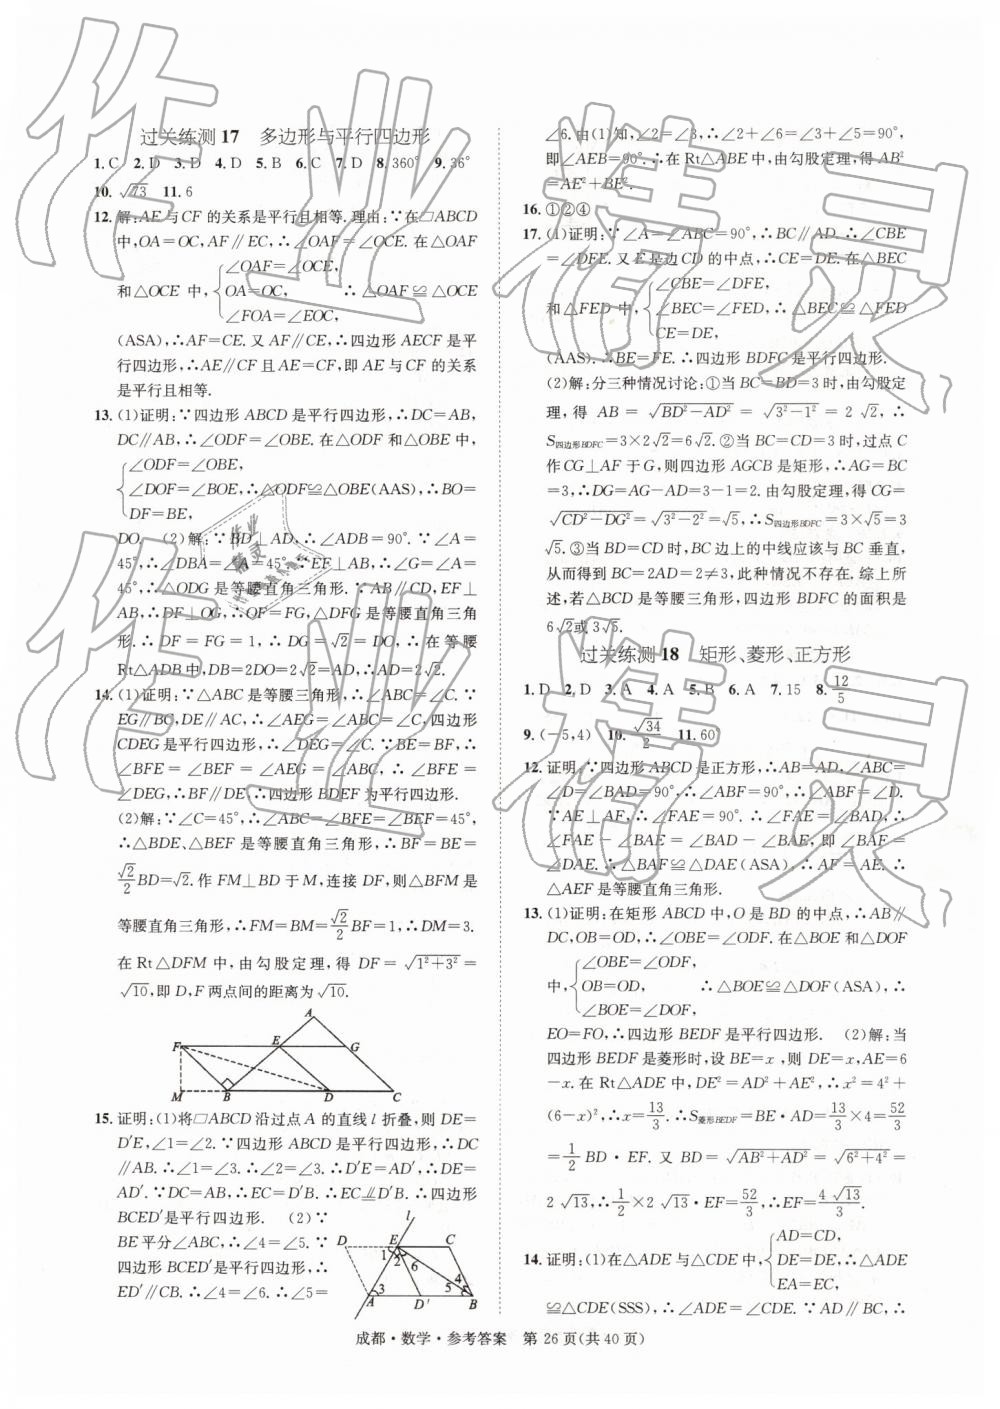 过关练测17 多边形与平行四边形
1. C 2. D 3. D 4. D 5. B 6. C 7. D 8. 360° 9. 36°
10. √73 11. 6
12. 解:AE与CF的关系是平行且相等.理由:∵在▱ABCD
中,OA=OC,AF∥EC,∴∠OAF=∠OCE.在△OAF
∠OAF=∠OCE,
和△OCE中, OA=OC, ∴△OAF≌△OCE
∠FOA=∠EOC,
(ASA),∴AF=CE.又AF∥CE,∴四边形AECF是平
行四边形,∴AE∥CF且AE=CF,即AE与CF的关系
是平行且相等.
13. (1)证明:∵四边形ABCD是平行四边形,∴DC=AB,
DC∥AB,∴∠ODF=∠OBE.在△ODF和△OBE中,
∠ODF=∠OBE,
∠DOF=∠BOE,∴△ODF≌△OBE(AAS),∴BO=
DF=BE,
DO. (2)解:∵BD⊥AD,∴∠ADB=90°.∵∠A=
45°,∴∠DBA=∠A=45°.∵EF⊥AB,∴∠G=∠A=
45°,∴△ODG是等腰直角三角形.∵AB∥CD,EF⊥
AB,∴DF⊥OG,∴OF=FG,△DFG是等腰直角三角
形.∴DF=FG=1,∴DG=√2=DO,∴在等腰
Rt△ADB中,DB=2DO=2√2=AD,∴AD=2√2.
14. (1)证明:∵△ABC是等腰三角形,∴∠ABC=∠C.∵
EG∥BC,DE∥AC,∴∠AEG=∠ABC=∠C,四边形
CDEG是平行四边形,∴∠DEG=∠C.∵BE=BF,∴
∠BFE=∠BEF=∠AEG=∠ABC,∴∠BFE=
∠DEG,∴BF∥DE,∴四边形BDEF为平行四边形.
(2)解:∵∠C=45°,∴∠ABC=∠BFE=∠BEF=45°,
∴△BDE、△BEF是等腰直角三角形,∴BF=BE=
√2/2 BD=√2.作FM⊥BD于M,连接DF,则△BFM是
等腰直角三角形,∴FM=BM=√2/2 BF=1,∴DM=3.
在Rt△DFM中,由勾股定理,得DF=√(1²+3²)=
√10,即D,F两点间的距离为√10.
A
F E G
M B D C
15. 证明:(1)将▱ABCD沿过点A的直线l折叠,则DE=
D′E,∠1=∠2.∵四边形ABCD是平行四边形,∴DC
∥AB.∴∠1=∠3.∴∠2=∠3.∴D′E=AD′,∴DE=
AD′.∵DC=AB,∴EC=D′B.∴EC⫽D′B.∴四边形
BCED′是平行四边形. (2)∵
BE平分∠ABC,∴∠4=∠5.∵
四边形BCED′是平行四边形,∴
ED′∥CB.∴∠4=∠6.∴∠5=
l
D E C
1 2 6 4
3 5
A D′ B
∠6.由(1)知,∠2=∠3,∴∠2+∠6=∠3+∠5=90°,
即∠AEB=90°.∴在Rt△ABE中,由勾股定理,得AB²
=AE²+BE².
16. ①②④
17. (1)证明:∵∠A=∠ABC=90°,∴BC∥AD.∴∠CBE
=∠DFE.又E是边CD的中点,∴CE=DE.在△BEC
∠CBE=∠DFE,
和△FED中, ∠BEC=∠FED,∴△BEC≌△FED
CE=DE,
(AAS).∴BE=FE.∴四边形BDFC是平行四边形.
(2)解:分三种情况讨论:①当BC=BD=3时,由勾股定
理,得AB=√(BD²−AD²)=√(3²−1²)=2√2,∴
S四边形BDFC=3×2√2=6√2.②当BC=CD=3时,过点C
作CG⊥AF于G,则四边形AGCB是矩形,∴AG=BC
=3,∴DG=AG−AD=3−1=2.由勾股定理,得CG=
√(CD²−DG²)=√(3²−2²)=√5,∴S四边形BDFC=3×√5=3
√5.③当BD=CD时,BC边上的中线应该与BC垂直,
从而得到BC=2AD=2≠3,此种情况不存在.综上所
述,若△BCD是等腰三角形,四边形BDFC的面积是
6√2或3√5.
过关练测18 矩形、菱形、正方形
1. D 2. D 3. A 4. A 5. B 6. A 7. 15 8. 12/5
9. (−5,4) 10. √34/2 11. 60°
12. 证明:∵四边形ABCD是正方形,∴AB=AD,∠ABC=
∠D=∠BAD=90°,∴∠ABF=90°.∴∠ABF=∠D.
∵AE⊥AF,∴∠FAE=90°.∴∠FAE=∠BAD,∴
∠FAE−∠BAE=∠BAD−∠BAE,即∠BAF=
∠DAE.∴△BAF≌△DAE(ASA),∴AF=AE.∴
△AEF是等腰直角三角形.
13. (1)证明:在矩形ABCD中,O是BD的中点,∴AB∥
DC,OB=OD,∴∠OBE=∠ODF.在△BOE和△DOF
∠OBE=∠ODF,
中, OB=OD, ∴△BOE≌△DOF(ASA),∴
∠BOE=∠DOF,
EO=FO,∴四边形BEDF是平行四边形. (2)解:当
四边形BEDF是菱形时,设BE=x,则DE=x,AE=6
−x.在Rt△ADE中,DE²=AD²+AE²,∴x²=4²+
(6−x)²,∴x=13/3.∴S菱形BEDF=BE·AD=13/3×4=52/3
=1/2 BD·EF.又BD=√(AB²+AD²)=√(6²+4²)=
2√13,∴1/2×2√13·EF=52/3,∴EF=4√13/3.
AD=CD,
14. 证明:(1)在△ADE与△CDE中, DE=DE,∴△ADE
EA=EC,
≌△CDE(SSS),∴∠ADE=∠CDE.∵AD∥BC,∴
成都·数学·参考答案 第26页(共40页)
作业精灵
作业精灵
作业精灵